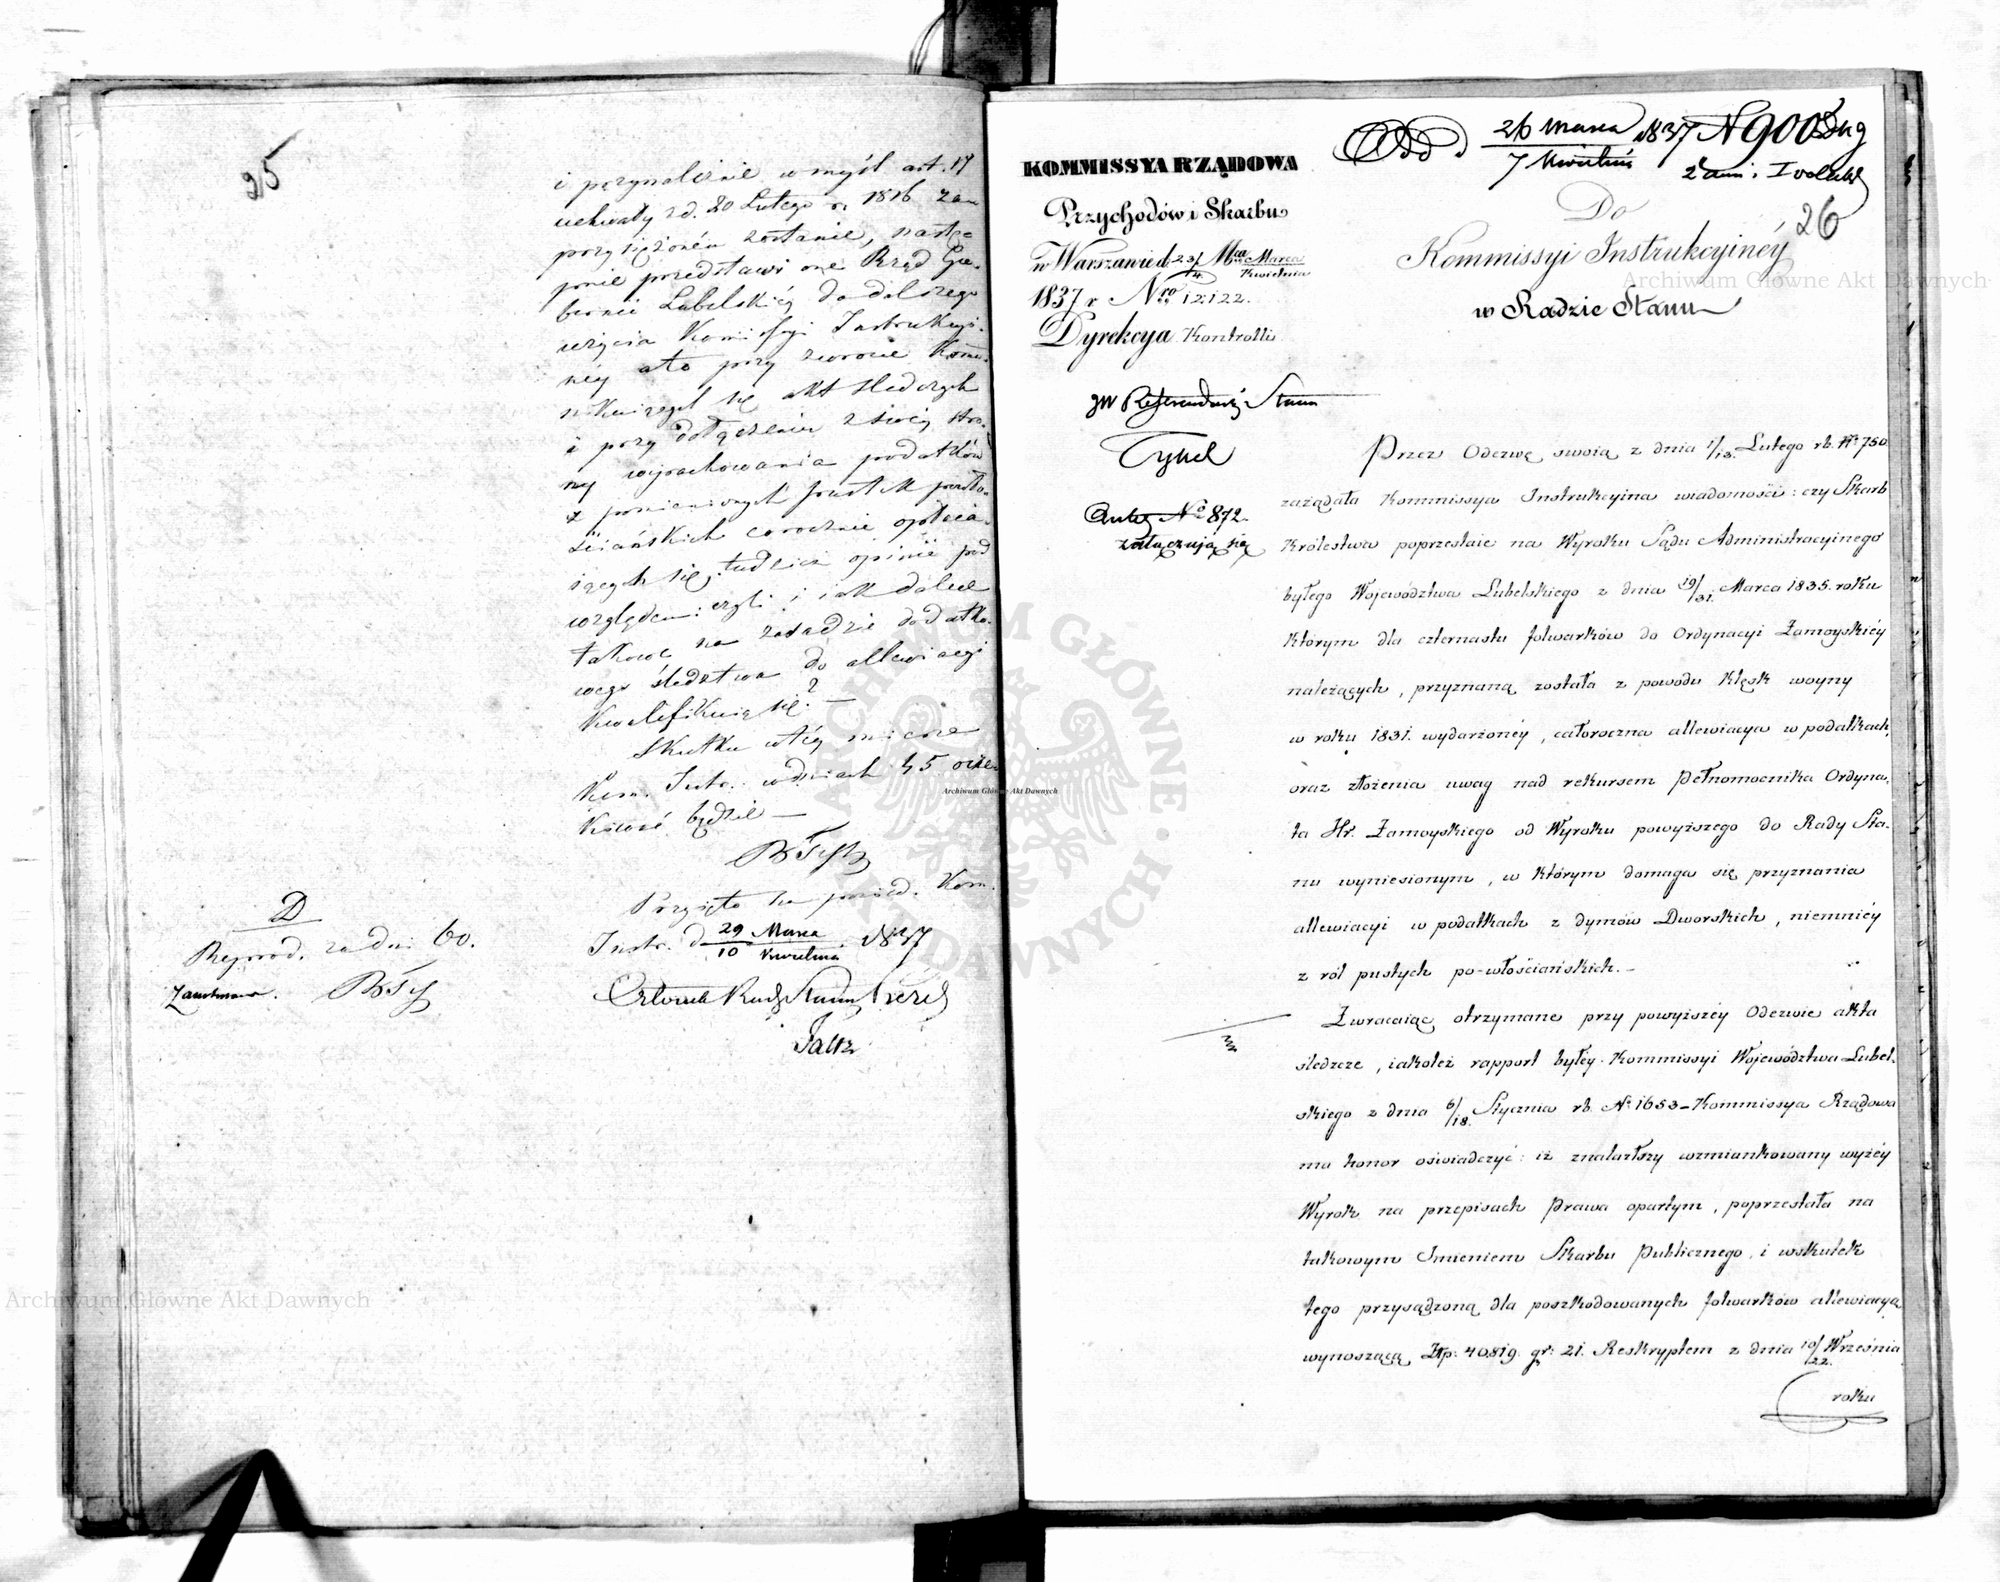 25
i przynależnie w myśl art. 17
uchwały z d. 20 Lutego r. 1816 za
przysiężonem zostanie, nastę
pnie przedstawi one Rząd Gu-
bernii Lubelskiéy do dalszego
użycia Kommissyi Instrukcyi-
néy a to przy zwrocie Kommu-
nikuiących się akt śledczych
i przy dołączeniu z swéy stro-
ny wyrachowania podatków
z pomienionych pustek powło-
ściańskich corocznie opłaca-
iących się, tudzież opinii pod
względem: czyli i iak dalece
takowe na zasadzie dodatko-
wego śledztwa do allewiacyi
kwalifikuią się? —
Skutku w téy mierze
Kom. Instr. w dniach 45 ocze-
kiwać będzie —
Przyięto na posied. Kom.
Instr. d. 29 Marca / 10 Kwietnia 1837
Członek Rady Stanu Prezes
D
Reprod. za dni 60.
KOMMISSYA RZĄDOWA
Przychodów i Skarbu
w Warszawie d. 23/4 Mca Marca / Kwietnia
1837 r Nro 12122.
Dyrekcya Kontrolli
JW Referendarz Stanu
Antea No 872.
załączują się
Odd d 26 Marca / 7 Kwietnia 1837 N 900
26
Do
Kommissyi Instrukcyinéy
w Radzie Stanu
Przez Odezwę swoią z dnia 1/13. Lutego rb. No 750
zażądała Kommissya Instrukcyina wiadomości: czy Skarb
Królestwa poprzestaie na Wyroku Sądu Administracyinego
byłego Województwa Lubelskiego z dnia 19/31. Marca 1835. roku
którym dla czternastu folwarków do Ordynacyi Zamoyskiéy
należących, przyznaną została z powodu klęsk woyny
w roku 1831. wydarzonéy, całoroczna allewiacya w podatkach,
oraz złożenia uwag nad rekursem Pełnomocnika Ordyna-
ta Hr. Zamoyskiego od Wyroku powyższego do Rady Sta-
nu wyniesionym, w którym domaga się przyznania
allewiacyi w podatkach z dymów Dworskich, niemniéy
z ról pustych po-włościańskich. –
Zwracaiąc otrzymane przy powyższéy Odezwie akta
śledzcze, iakoteż rapport byłéy Kommissyi Województwa Lubel-
skiego z dnia 6/18. Stycznia rb. No 1653 – Kommissya Rządowa
ma honor oświadczyć: iż znalazłszy wzmiankowany wyżéy
Wyrok na przepisach Prawa opartym, poprzestała na
takowym Imieniem Skarbu Publicznego, i wskutek
tego przysądzoną dla poszkodowanych folwarków allewiacyą
wynoszącą Złp: 40819. gr: 21. Reskryptem z dnia 10/22. Września
roku